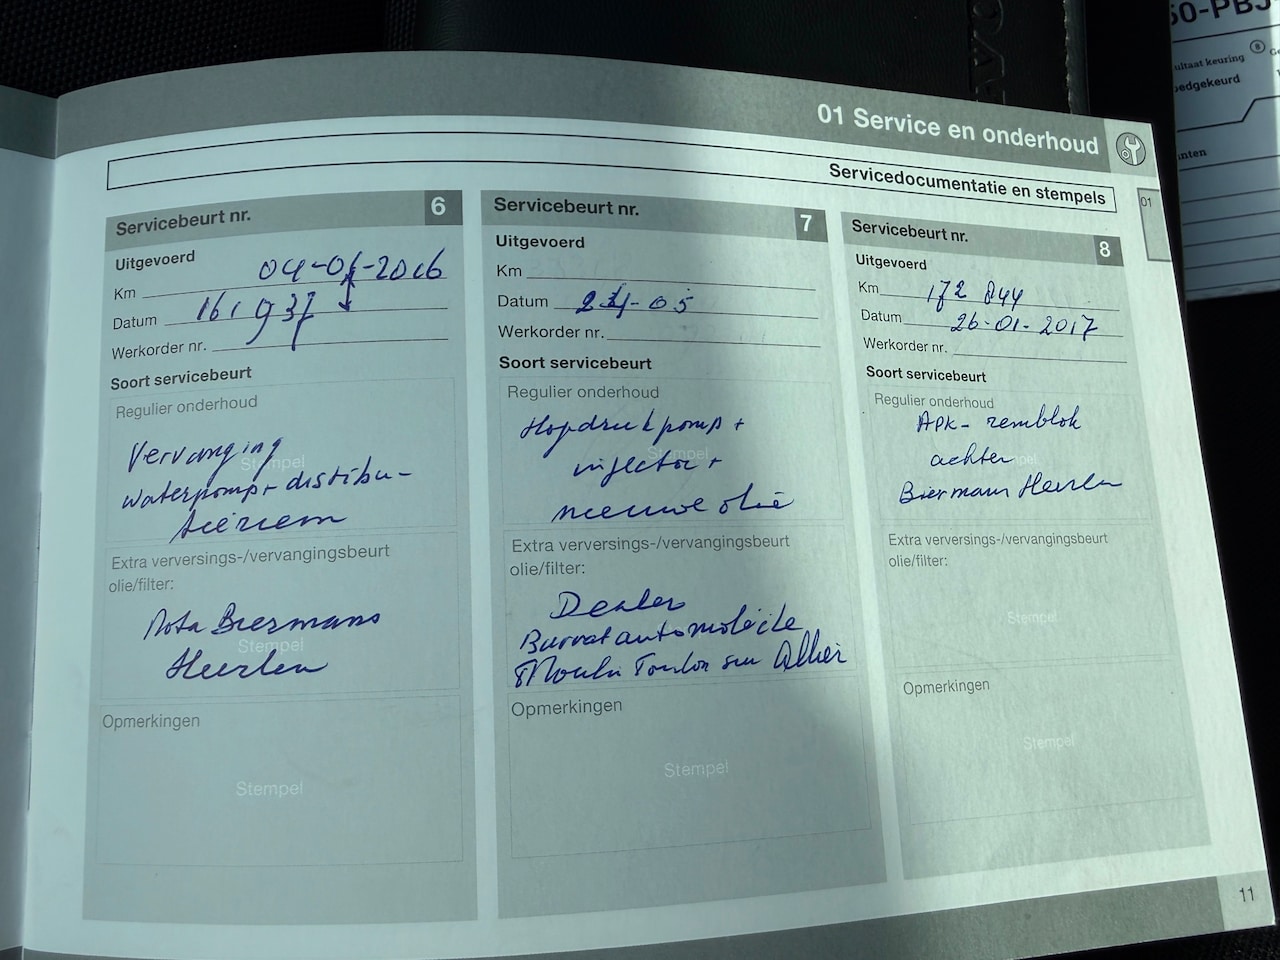 01 Service en onderhoud
Servicedocumentatie en stempels
01
Servicebeurt nr. 6
Uitgevoerd
04-01-2016
Km
161937
Datum
Werkorder nr.
Soort servicebeurt
Regulier onderhoud
Vervanging
Stempel
waterpomp + distribu-
tieriem
Extra verversings-/vervangingsbeurt
olie/filter:
Nota Biermans
Stempel
Heerlen
Opmerkingen
Stempel
Servicebeurt nr. 7
Uitgevoerd
Km
Datum 24-05
Werkorder nr.
Soort servicebeurt
Regulier onderhoud
Hogedrukpomp +
Stempel
injector +
nieuwe olie
Extra verversings-/vervangingsbeurt
olie/filter:
Dealer
Moulin Toulon sur Allier
Opmerkingen
Stempel
Servicebeurt nr. 8
Uitgevoerd
Km 172 844
Datum 26-01-2017
Werkorder nr.
Soort servicebeurt
Regulier onderhoud
APK- remblok
achter
Biermans Heerlen
Extra verversings-/vervangingsbeurt
olie/filter:
Stempel
Opmerkingen
Stempel
11
50-PBJ
ultaat keuring
edgekeurd
nten